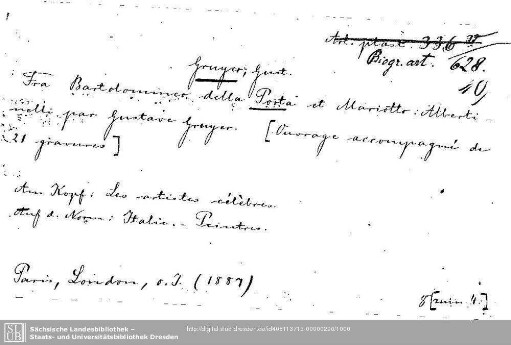 Art. plast. 336
Biogr. art. 628.
Gruyer, Gust.
Fra Bartolommeo della Porta et Mariotto Alberti
nelli par Gustave Gruyer. [Ouvrage accompagné de
21 gravures]
Am Kopf: Les artistes célèbres
Auf d. Norm: Italie. - Peintres.
Paris, London, o. J. (1887)
Sächsische Landesbibliothek –
Staats- und Universitätsbibliothek Dresden